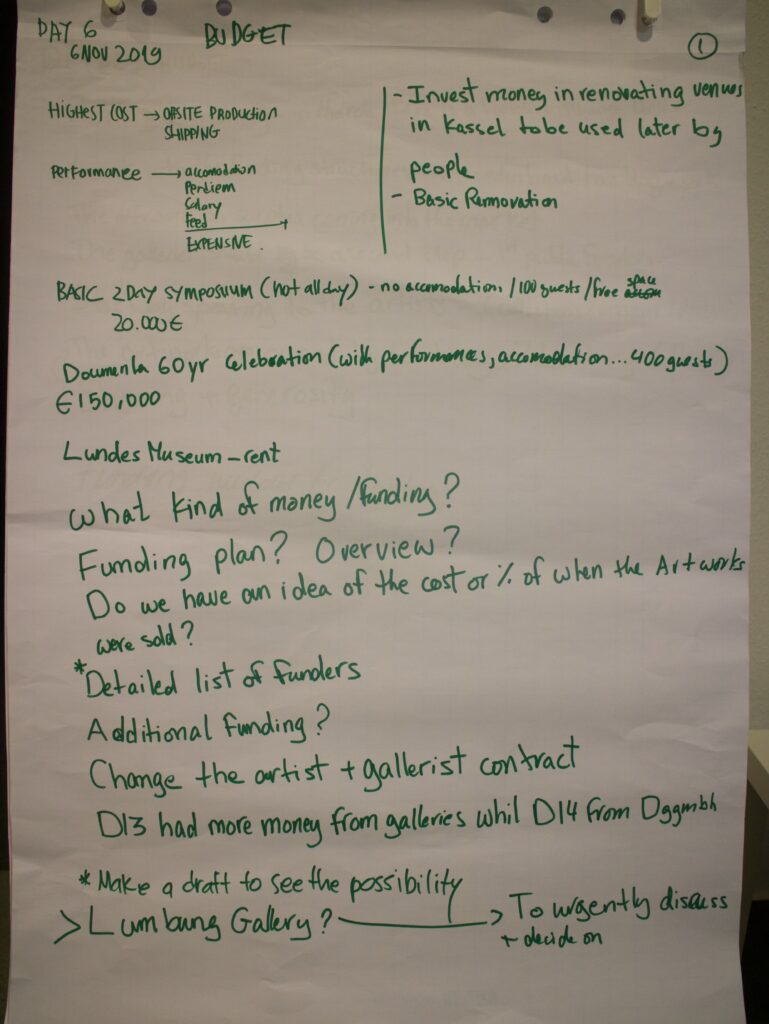 DAY 6
6 NOV 2019
BUDGET
1
HIGHEST COST → OFFSITE PRODUCTION
SHIPPING
PERFORMANCE → accomodation
Perdiem
Salary
Feed
EXPENSIVE.
- Invest money in renovating venues
in Kassel to be used later by
people
- Basic Rennovation
BASIC 2 DAY SYMPOSIUM (not all day) - no accomodation. /100 guests / free space
20.000€
Documenta 60yr celebration (with performances, accomodation... 400 guests)
€150,000
Lundes Museum - rent
what kind of money /funding?
Funding plan? Overview?
Do we have an idea of the cost or % of when the Artworks
were sold?
* Detailed list of funders
Additional funding?
Change the artist + gallerist contract
D13 had more money from galleries whil D14 from Dggmbh
* Make a draft to see the possibility
> Lumbung Gallery? → To urgently discuss
+ decide on